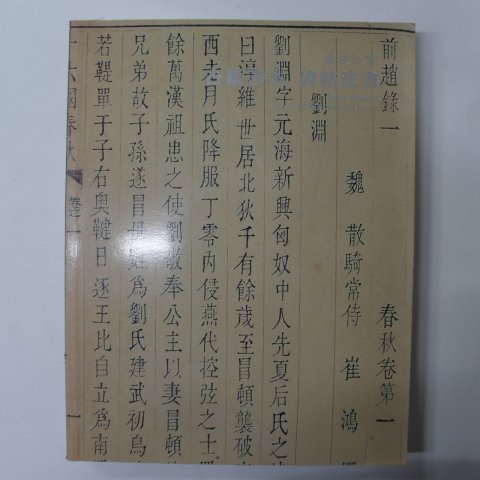 前趙錄一
春秋卷第一
魏 散騎常侍 崔鴻
劉淵
劉淵字元海新興匈奴中人先夏后氏之
曰淳維世居北狄千有餘歲至冒頓襲破
西走月氏降服丁零內侵燕代控弦之士
餘萬漢祖患之使劉敬奉公主以妻冒頓
兄弟故子孫遂冒母姓爲劉氏建武初烏
若鞮單于子右奧鞬日逐王比自立爲南
十六國春秋
卷之一
一